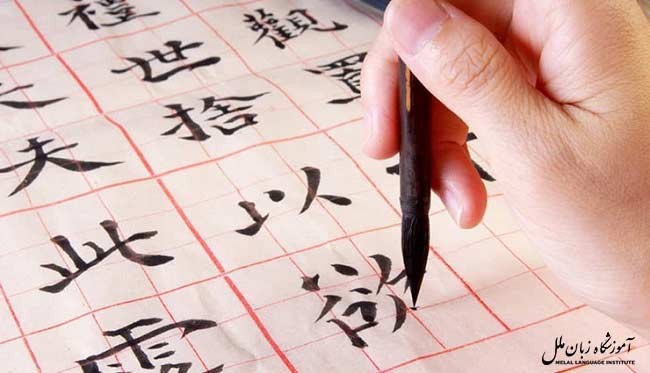 觀
禮世捨以欲
夫此
آموزشگاه زبان ملل
MELAL LANGUAGE INSTITUTE